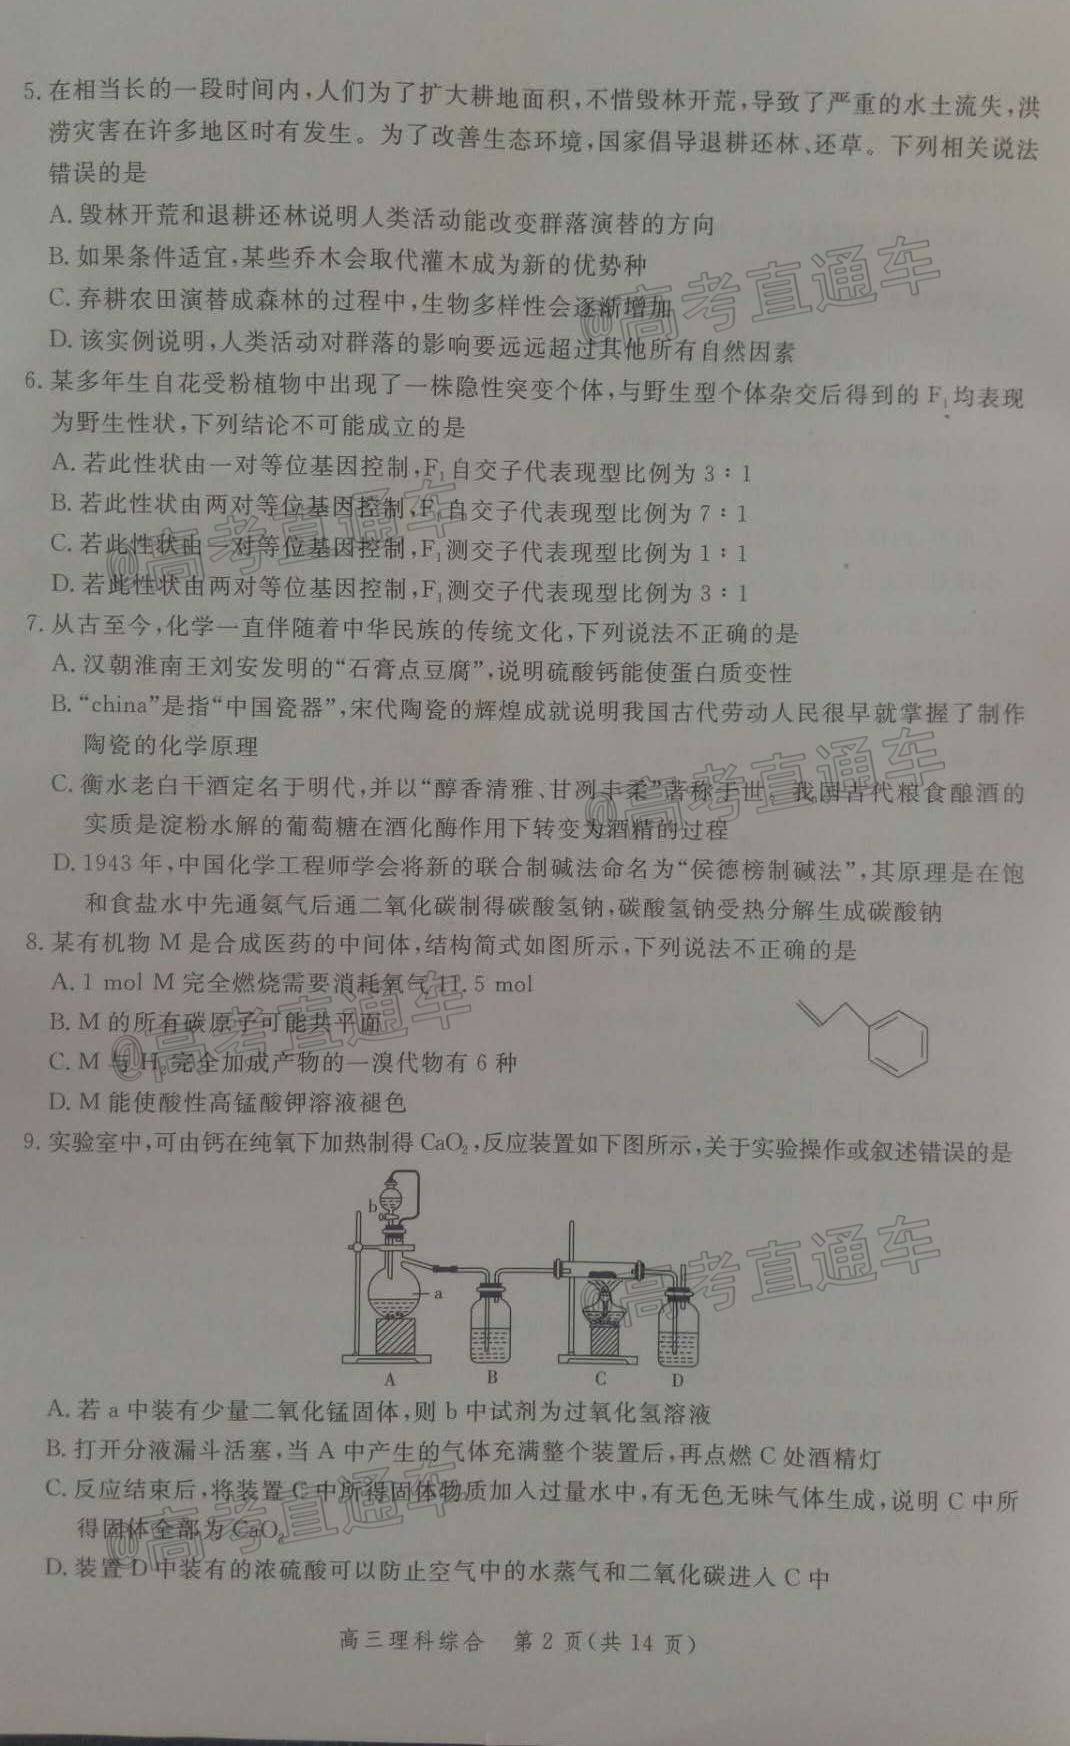 5. 在相当长的一段时间内,人们为了扩大耕地面积,不惜毁林开荒,导致了严重的水土流失,洪
涝灾害在许多地区时有发生。为了改善生态环境,国家倡导退耕还林、还草。下列相关说法
错误的是
A. 毁林开荒和退耕还林说明人类活动能改变群落演替的方向
B. 如果条件适宜,某些乔木会取代灌木成为新的优势种
C. 弃耕农田演替成森林的过程中,生物多样性会逐渐增加
D. 该实例说明,人类活动对群落的影响要远远超过其他所有自然因素
6. 某多年生自花受粉植物中出现了一株隐性突变个体,与野生型个体杂交后得到的 F₁均表现
为野生性状,下列结论不可能成立的是
A. 若此性状由一对等位基因控制,F₁自交子代表现型比例为 3∶1
B. 若此性状由两对等位基因控制,F₁自交子代表现型比例为 7∶1
C. 若此性状由一对等位基因控制,F₁测交子代表现型比例为 1∶1
D. 若此性状由两对等位基因控制,F₁测交子代表现型比例为 3∶1
7. 从古至今,化学一直伴随着中华民族的传统文化,下列说法不正确的是
A. 汉朝淮南王刘安发明的“石膏点豆腐”,说明硫酸钙能使蛋白质变性
B. “china”是指“中国瓷器”,宋代陶瓷的辉煌成就说明我国古代劳动人民很早就掌握了制作
陶瓷的化学原理
C. 衡水老白干酒定名于明代,并以“醇香清雅、甘冽丰柔”著称于世,我国古代粮食酿酒的
实质是淀粉水解的葡萄糖在酒化酶作用下转变为酒精的过程
D. 1943 年,中国化学工程师学会将新的联合制碱法命名为“侯德榜制碱法”,其原理是在饱
和食盐水中先通氨气后通二氧化碳制得碳酸氢钠,碳酸氢钠受热分解生成碳酸钠
8. 某有机物 M 是合成医药的中间体,结构简式如图所示,下列说法不正确的是
A. 1 mol M 完全燃烧需要消耗氧气 11.5 mol
B. M 的所有碳原子可能共平面
C. M 与 H₂完全加成产物的一溴代物有 6 种
D. M 能使酸性高锰酸钾溶液褪色
9. 实验室中,可由钙在纯氧下加热制得 CaO₂,反应装置如下图所示,关于实验操作或叙述错误的是
b
a
A B C D
A. 若 a 中装有少量二氧化锰固体,则 b 中试剂为过氧化氢溶液
B. 打开分液漏斗活塞,当 A 中产生的气体充满整个装置后,再点燃 C 处酒精灯
C. 反应结束后,将装置 C 中所得固体物质加入过量水中,有无色无味气体生成,说明 C 中所
得固体全部为 CaO₂
D. 装置 D 中装有的浓硫酸可以防止空气中的水蒸气和二氧化碳进入 C 中
高三理科综合 第 2 页(共 14 页)
@高考直通车
@高考直通车
@高考直通车
@高考直通车
@高考直通车
@高考直通车